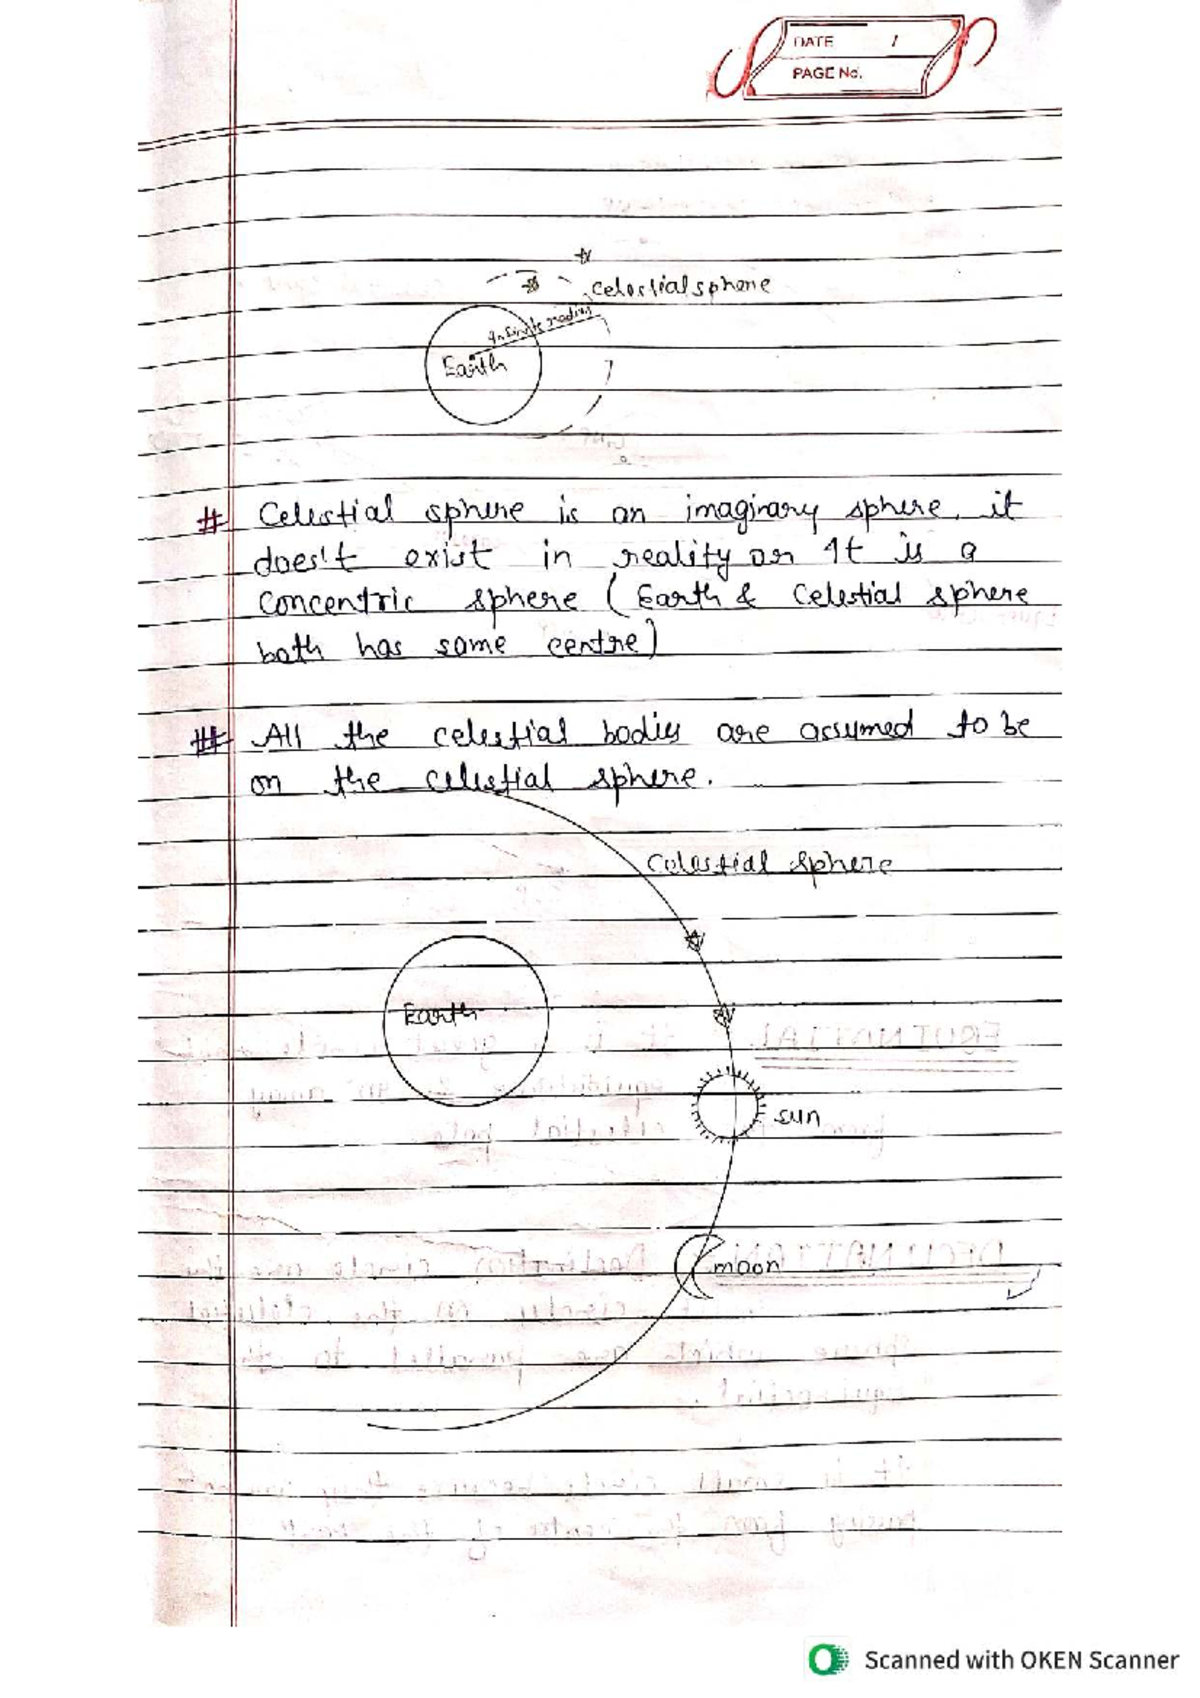 DATE /
PAGE No.
celestial sphene
Infinite radius
Earth
# Celestial sphere is an imaginary sphere, it
does't exist in reality or It is a
concentric sphere (Earth & Celestial sphere
both has same centre)
## All the celestial bodies are assumed to be
on the celestial sphere.
Celestial sphere
Earth
sun
moon
Scanned with OKEN Scanner